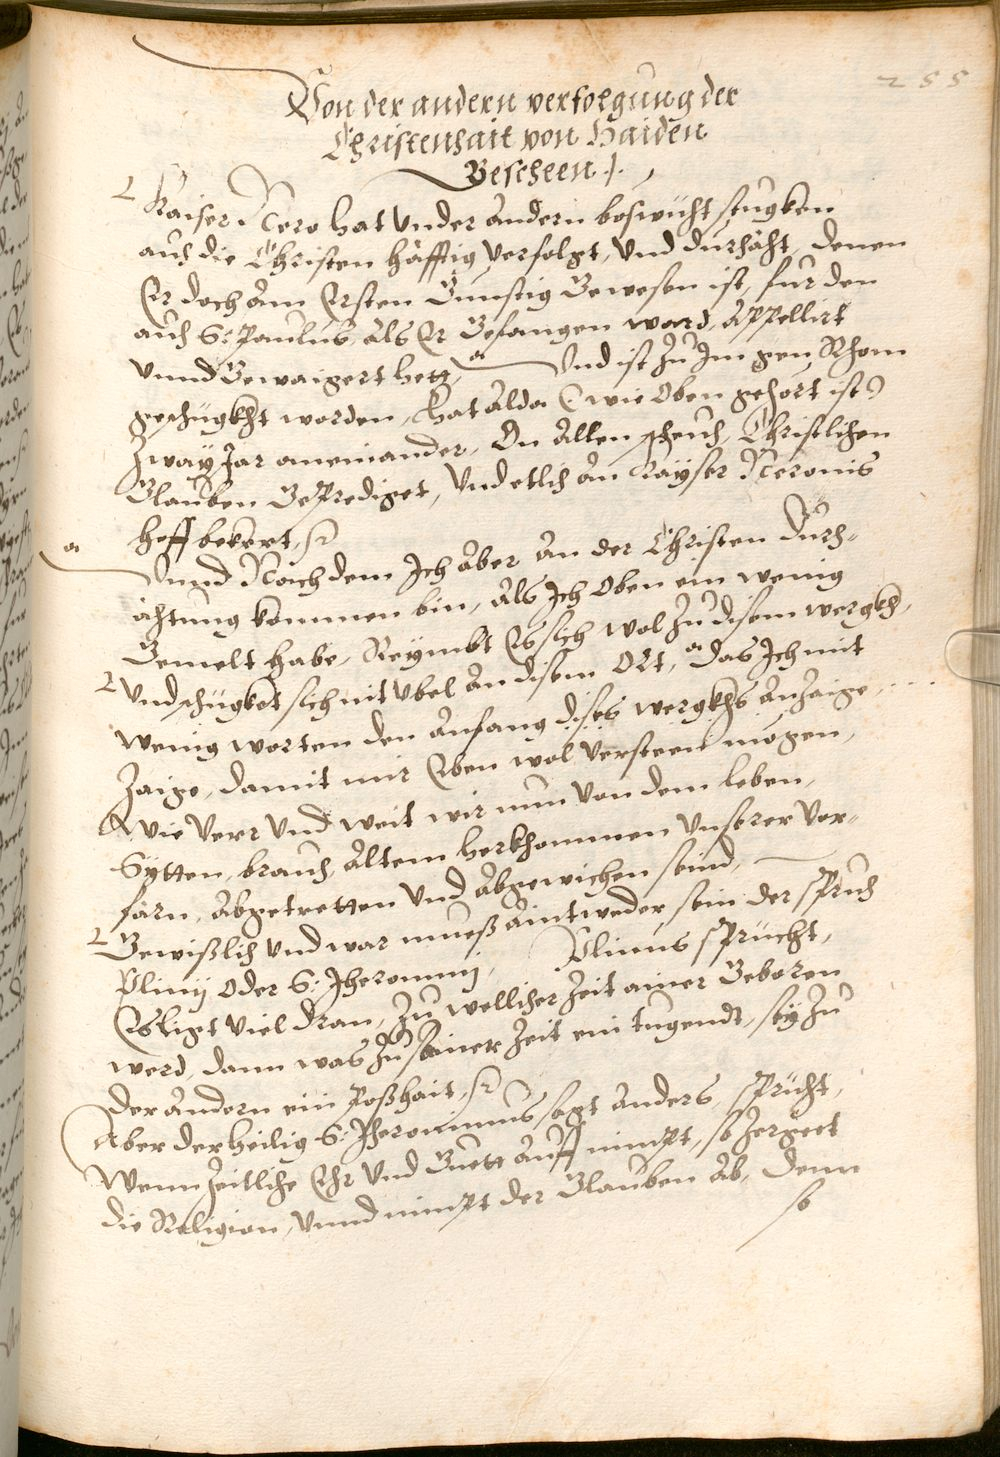 255
Von der andern verfolgung der
Christenhait von Haiden
Bescheen ./.
Kaiser Nero hat Vnder andern boswicht stugken
auch die Christen häfftig Verfolgt, Vnd durchächt, denen
Er doch am Ersten Gunstig Gewesen ist, fur den
auch S: Paulus, als Er Gefangen ward, appellirt
Vnnd Gewaigert hett, Vnd ist zu Im gen Rhom
geschigkht worden, hat alda (wie oben gehort ist)
Zway Jar aneinander, On allen scheuch, Christlichen
Glauben Geprediget, Vnd etlich an Kayser Neronis
Hoff bekert, etc
Vnnd Nach dem Ich aber an der Christen Durch-
ächtung kommen bin, als Ich oben ein wenig
Gemelt habe, Reymbt Es sich wol zu disem wergkh,
Vnd schigket sich nit Vbel an disem Ort, das Ich mit
wenig worten den anfang dises wergkhs anzaige,
zaige, damit wir Eben wol Versteen mögen,
Wie Verr Vnd weit wir nun Von dem leben,
Sytten, brauch, altem herkhommen Vnserer Vor-
farn, abgetretten Vnd abgewichen seind,
Gewißlich Vnd war mueß aintweder sein der spruch
Plinij oder S: Iheronimj, Plinius spricht,
Es ligt Viel dran, zu wellicher zeit ainer Geboren
werd, dann was zu seiner zeit ein tugendt, sey zu
der andern ein Boßhait, etc
Aber der heilig S: Iheronimus sagt anders, spricht,
Wenn zeitliche Ehr Vnd Guett auff nimpt, so zergeet
die Religion, Vnnd nimpt der Glauben ab, Denn
so